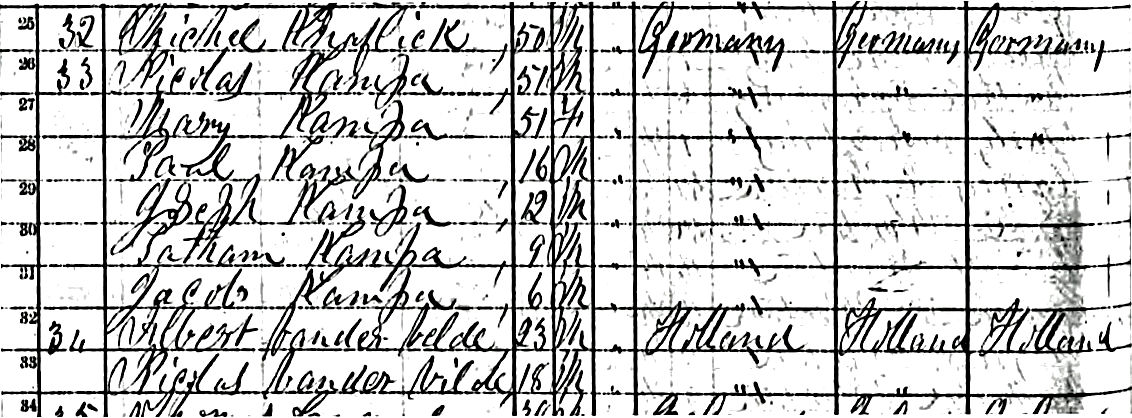 25 32 Michel 50 M " Germany Germany Germany
26 33 Nicolas Kampa 51 M " " " "
27 Mary Kampa 51 F " " " "
28 Paul Kampa 16 M " "
29 Joseph Kampa 12 M " "
30 Kampa 9 M " "
31 Jacob Kampa 6 M " "
32 34 Albert vander velde 23 M " Holland Holland Holland
33 Nicolas vander vilde 18 M " " "
34 35